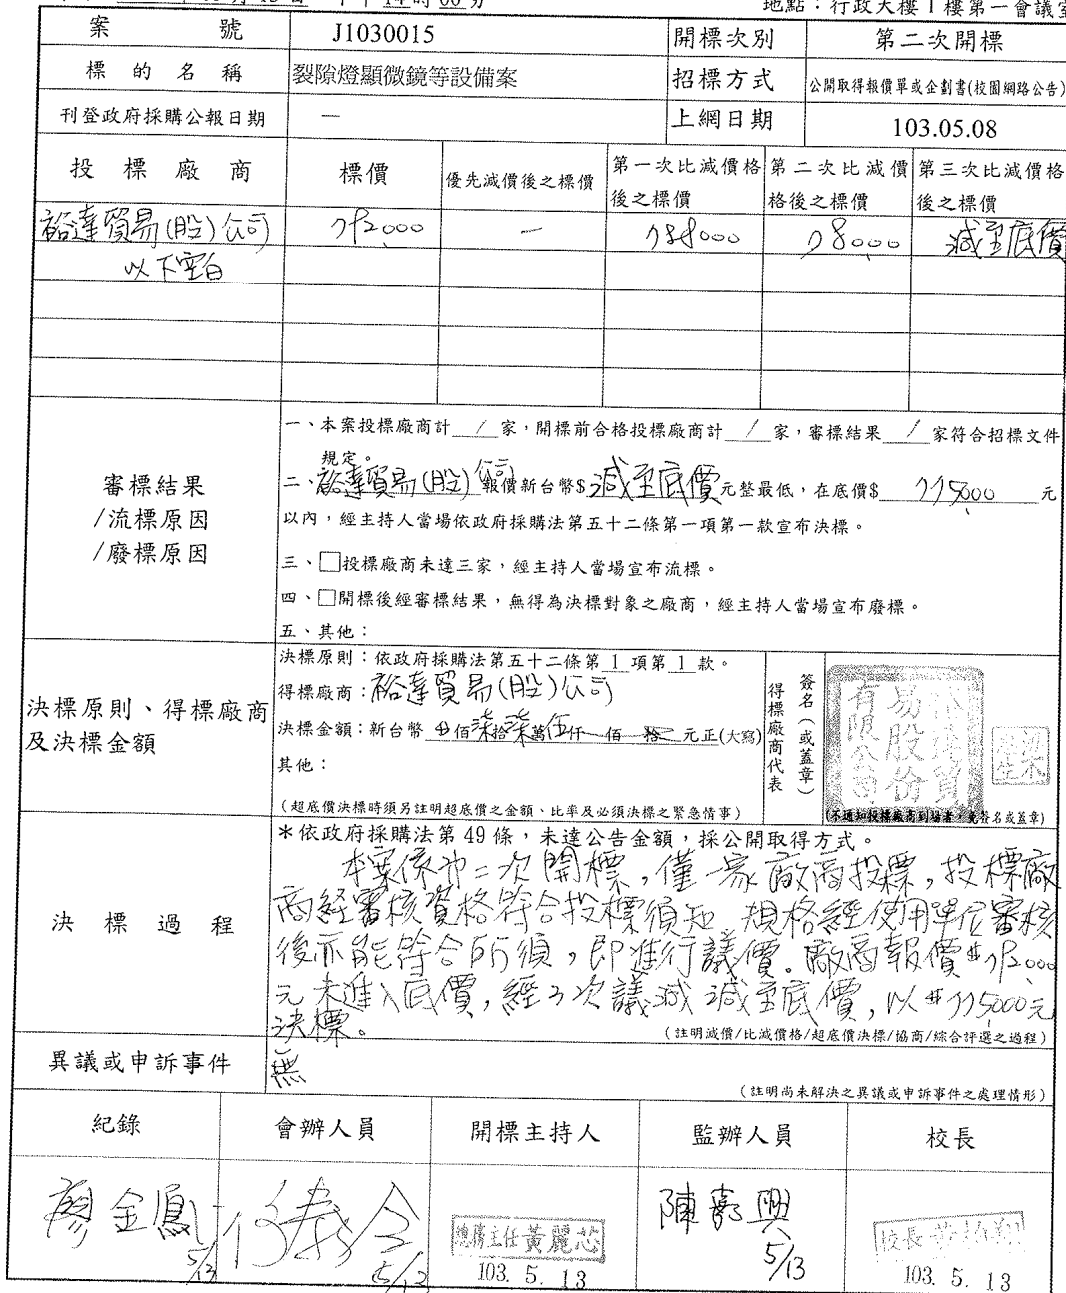 14時00分
地點：行政大樓1樓第一會議室
案號 J1030015 開標次別 第二次開標
標的名稱 裂隙燈顯微鏡等設備案 招標方式 公開取得報價單或企劃書(校園網路公告)
刊登政府採購公報日期 — 上網日期 103.05.08
投標廠商 標價 優先減價後之標價 第一次比減價格後之標價 第二次比減價格後之標價 第三次比減價格後之標價
裕達貿易(股)公司 792000 — 788000 78000 減至底價
以下空白
審標結果
/流標原因
/廢標原因
一、本案投標廠商計 / 家，開標前合格投標廠商計 / 家，審標結果 / 家符合招標文件
規定。
二、裕達貿易(股)公司報價新台幣$減至底價元整最低，在底價$ 775000 元
以內，經主持人當場依政府採購法第五十二條第一項第一款宣布決標。
三、□投標廠商未達三家，經主持人當場宣布流標。
四、□開標後經審標結果，無得為決標對象之廠商，經主持人當場宣布廢標。
五、其他：
決標原則、得標廠商
及決標金額
決標原則：依政府採購法第五十二條第1項第1款。
得標廠商：裕達貿易(股)公司
決標金額：新台幣 佰柒拾柒萬伍仟 佰 拾 元正(大寫)
其他：
(超底價決標時須另註明超底價之金額、比率及必須決標之緊急情事)
得標廠商代表
簽名（或蓋章）
裕達貿易股份有限公司
(不通知投標廠商到場者，免簽名或蓋章)
決標過程
＊依政府採購法第49條，未達公告金額，採公開取得方式。
本案係第二次開標，僅一家廠商投標，投標廠
商經審核資格符合投標須知，規格經使用單位審核
後亦能符合所須，即進行議價。廠商報價#792000
元未進入底價，經3次議減 減至底價，以#775000元
決標。
(註明減價/比減價格/超底價決標/協商/綜合評選之過程)
異議或申訴事件 無
(註明尚未解決之異議或申訴事件之處理情形)
紀錄 會辦人員 開標主持人 監辦人員 校長
廖金鳳 5/13
5/13
總務主任黃麗芯
103. 5. 13
5/13
校長
103. 5. 13